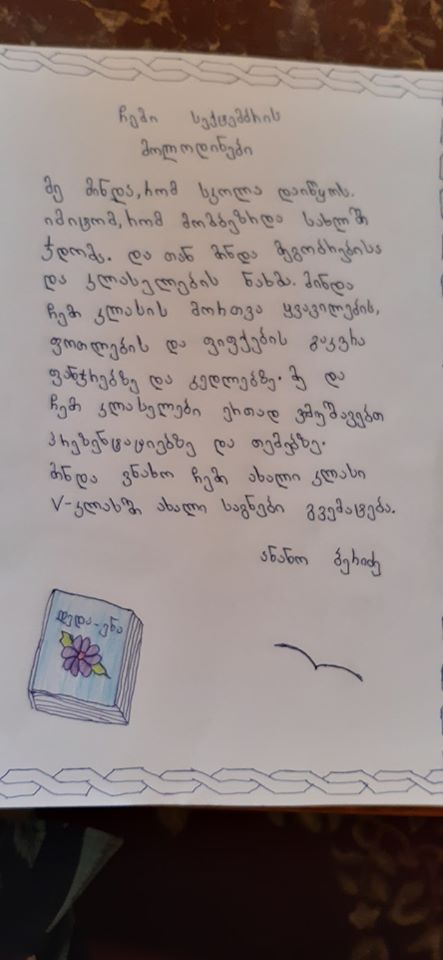 ჩემი სექტემბრის
მოლოდინები
მე მინდა, რომ სკოლა დაიწყოს.
იმიტომ, რომ მომბეზრდა სახლში
ჯდომა. და თან მინდა მეგობრებისა
და კლასელების ნახვა. მინდა
ჩემი კლასის მორთვა ყვავილების,
ფოთლების და ფიფქების გაკვრა
ფანჯრებზე და კედლებზე. მე და
ჩემი კლასელები ერთად ვმუშავებთ
პრეზენტაციებზე და თემებზე.
მინდა ვნახო ჩემი ახალი კლასი
V-კლასში ახალი საგნები გვემატება.
ანანო ბერიძე
დედა-ენა